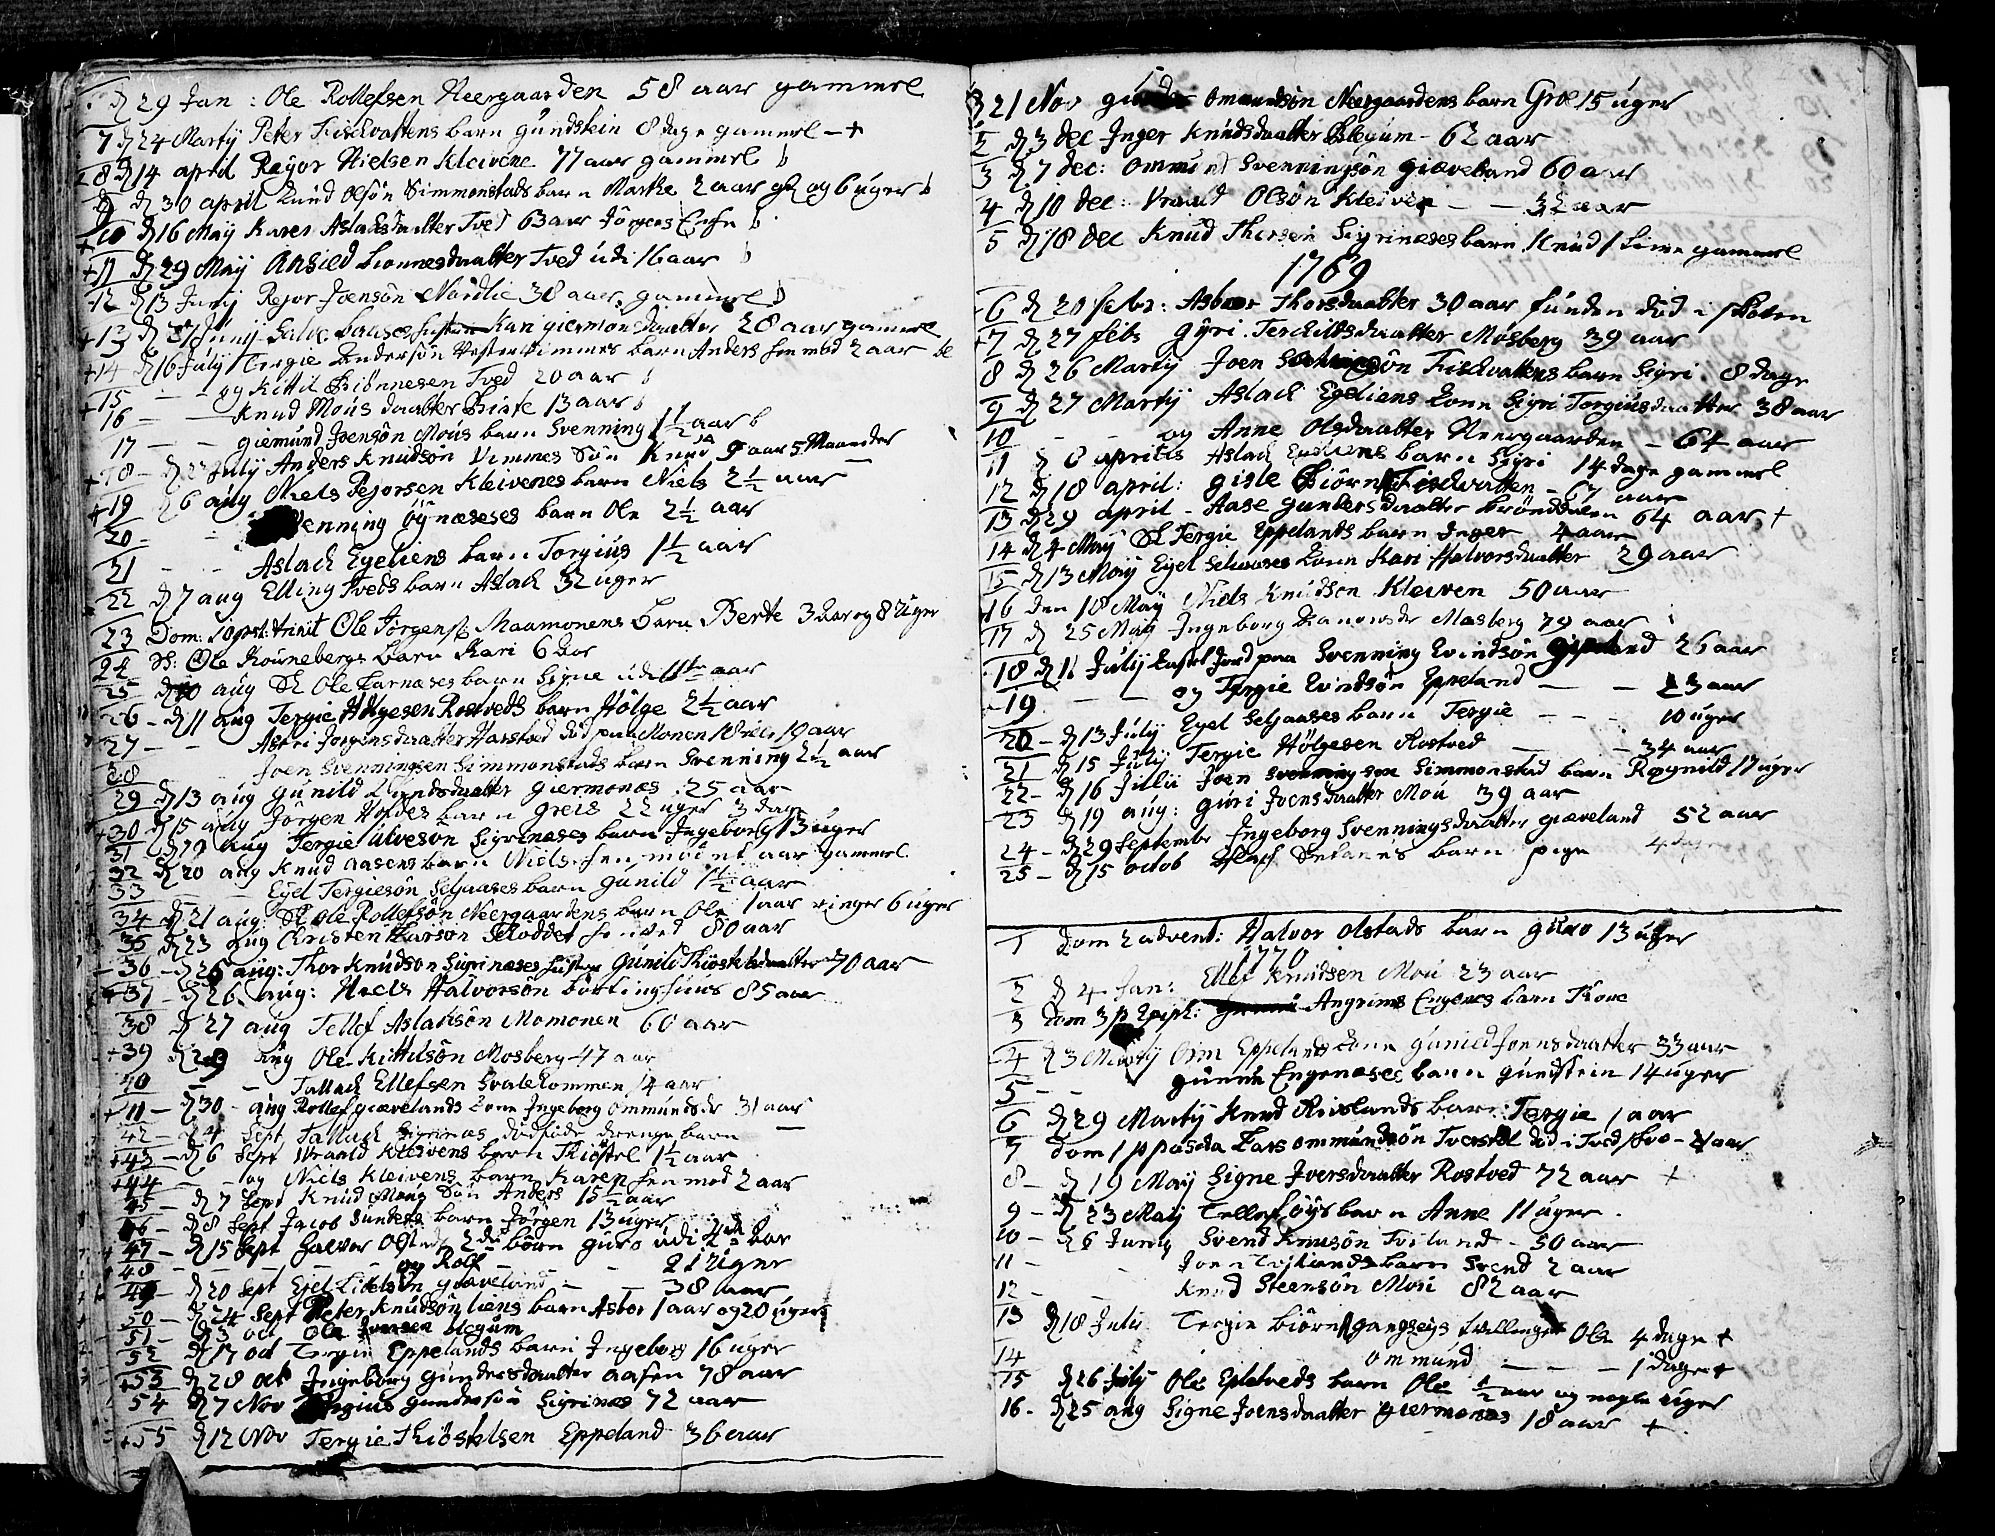 d 29 Jan: Ole Rollefsen Neergaarden 58 aar gammel
7 d 24 Martij Peter Fischvattens barn gundstein 8 dage gammel - +
8 d 14 april Rejor Nielsen Kleivene 77 aar gammel
9 d 30 april Knud Olsön Simmonstads barn Marthe 2 aar og 6 uger
10 d 16 Maij Karen Aslaksdaatter Tved 63 aar Jörgens Enke
+11 d 29 Maij Ansied Lionnesdaatter Tved udi 16 aar
12 d 13 Junij Rejor Joensön Nordlie 38 aar gammel
+13 d 27 Junij Kari giermondsdaatter 28 aar gammel
+14 d 16 Julij Tergie Andersön Vestervimmes barn Anders henimod 2 aar
+15 - - og Kittil Biönnesen Tved 20 aar
16 - - Knud Mous daatter Birte 13 aar
17 - - giemund Joensön Mous barn Svenning 1½ aar
+18 - d 23 Julij Anders Knudsön Vimmes Sön Knud 9 aar 5 Maaneder
+19 d 6 aug Niels Rejorsen Kleivenes barn Niels 2½ aar
20 - - Svenning Öynæseses barn Ole 2½ aar
21 - - Aslach Egeliens barn Torgius 1½ aar
22 d 7 aug Elling Tveds barn Aslach 32 uger
23 Dom: 10 post: trinit Ole Jörgens: Maamonens barn Berte 3 aar og 8 Uger
24 Ole Kournebergs barn Kari 6 aar
25 d 10 aug Ole barn Signe udi 11te aar
26 - d 11 aug Tergie Hölgesen Rostveds barn Hölge 2½ aar
27 - - Astri Jorgensdaatter Harstved död paa Monen 19 aar
28 Joen Svenningsen Simmonstads barn Svenning 2½ aar
29 d 13 aug Gunild daatter giermonæs 25 aar
+30 d 15 aug Jörgen Holtes barn greis 22 uger 3 dage
31 d 19 aug Tergie Ulveson Sigrinæses barn Ingeborg 13 uger
32 d 20 aug Knud aasens barn Niels henimod et aar gammel
33 - Eyel Tergiesön Selaases barn Gunild 1½ aar
34 d 21 aug Ole Rollefsön Neergaardens barn Ole 1 aar ringer 6 uger
35 d 23 aug Kristen Larson 80 aar
- 36 - d 26 aug: Thor Knudson Sigrinæses hustru Gunild Kiöstelsdaatter 70 aar
+37 - d 26 aug: Niels Halvorsön 85 aar
38 d 27 aug Tellef Aslaksön Momonen 60 aar
+39 d 28 aug Ole Kittilsön Mosberg 47 aar
40 - - Tallach Ellefsen Svalekommen 14 aar
+ 41 - d 30 - aug Rollef grævelands kone Ingeborg Ommundsdr 31 aar
42 - d 4 Sept Tallach Sigrinæs dödföde drenge barn
+43 - d 6 Sept Vraald Kleivens barn Kiöstel 1½ aar
+44 - - og Niels Kleivens barn Karen henimod 2 aar
45 - d 7 Sept Knud Mons Sön Anders 15½ aar
46 - d 8 Sept Jacob Sundets barn Jörgen 13 uger
47 - d 15 Sept Halvor Olstads 2de börn guro udi 4de aar
48 - og Rolf - - - 21 Uger
49 - d 20 Sept Eyel grævelands - - 38 aar
50 - d 24 Sept Peter Knudsön Liens barn Asbor 1 aar og 20 uger
51 - d 3 oct Ole Iversen blegum
52 d 17 oct Tergie Eppelands barn Ingeborg 16 uger
+53 d 28 oct Ingeborg Gundersdaatter aasen 78 aar
54 d 7 Nov Torgius gundersön Sigrinæs 72 aar
+55 d 12 Nov Tergie Kiöstelsen Eppeland 36 aar
d 21 Nov Omundsön Neergaardens barn Groe 15 uger
2 d 3 dec Inger Knudsdaatter Blegum - 62 aar
3 d 7 dec: Ommund Svenningsön giæveland 60 aar
4 d 10 dec: Vraald Olsön Kleiven - - 32 aar
5 d 18 dec Knud Thorsen Sigrinæses barn Knud 1 time gammel
1769
6 d 20 febr: Asbor Thorsdaatter 30 aar funden död i skoven
+7 d 27 feb Gyri Terchildsdaatter Mosberg 39 aar
8 d 26 Martij Joen Svenningsön Fischvattens barn Sigri 8 dage
9 d 27 Martij Aslach Egeliens kone Sigri Torgiusdaatter 38 aar
10 - - og Anne Olsdaatter Neergaarden - 64 aar
11 d 8 aprilis Aslach Egeliens barn Sigri 14 dage gammel
12 d 18 april: gisle Biörns Fischvatten - 67 aar
13 d 29 april - Aase Gundersdaatter brönddalen 64 aar +
14 d 4 Maij Tergie Eppelands barn Inger 4 aar
15 d 13 Maij Eyel Selaases kone Kari Halvorsdaatter 29 aar
16 den 18 Maij Niels Knudsen Kleiven 50 aar
17 d 25 Maij Ingeborg Mosberg 79 aar
18 d 11 Julij kastet Jord paa Svenning Evindsön Eppeland 26 aar
- 19 - - og Tergie Evindsön Eppeland - - 23 aar
20 - d 13 Julij Eyel Selaases barn Tergie - - - 10 uger
21 d 15 Julij Tergie Hölgesen Rostved - - 34 aar
22 - d 16 Julij Joen Svenningsen Simmonstad barn Ragnild 17 uger
23 d 19 aug: guri Joensdaatter Mou 39 aar
24 - d 29 September Ingeborg Svenningsdaatter giæveland 52 aar
25 - d 15 octob barn pige 4 dage
1 Dom 2 advent: Halvor Olstads barn guro 13 uger
1770
2 d 4 Jan: Ellef Knudsen Mou 23 aar
3 Dom 3 p Epiph: Angrims Engenes barn Tkone
4 d 3 Martij Orm Eppelands kone Gunild Joensdaatter 33 aar
5 - - Engenæses barn gundstein 14 uger
6 d 29 Martij Knud Risslands barn: Tergie 1 aar
7 Dom 1 p pascha Lars ommundsön Tverstöl död i Tved - aar
8 - d 19 Maij Signe Iversdaatter Rostved 72 aar +
9 - d 23 Maij Tellef öys barn Anne 11 uger.
10 - d 6 Junij Svend Knudsön Tveland - 50 aar
11 - - Joen Tvelands barn Svend 2 aar
12 - - Knud Steensön Mou 82 aar
13 d 18 Julij Tergie Biörns gangseys tvillinger Ole 4 dage +
14 ommund - - - 1 dag +
15 d 26 Julij Ole Eptveds barn Ole ½ aar og nogle uger
16 - d 25 aug Signe Joensdaatter giermones 18 aar +